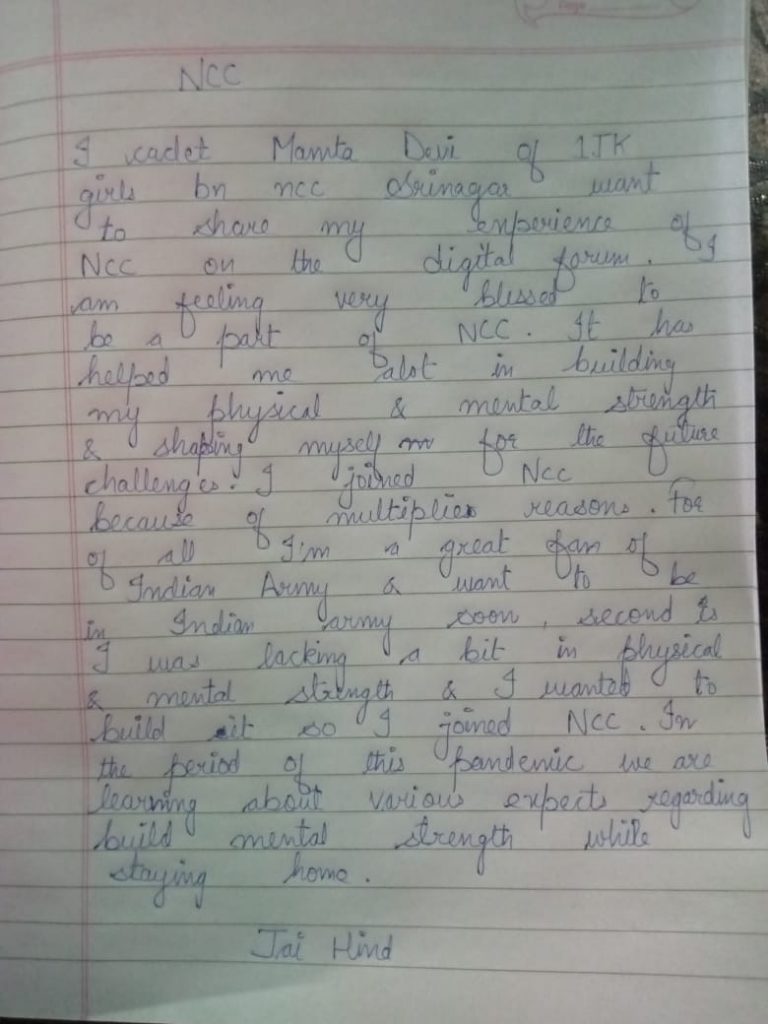 Page
NCC
I cadet Mamta Devi of 1JK
girls bn ncc Srinagar want
to share my experience of
NCC on the digital forum. I
am feeling very blessed to
be a part of NCC. It has
helped me alot in building
my physical & mental strength
& shaping myself for the future
challenges. I joined NCC
because of multiplies reasons. For
of all I'm a great fan of
Indian Army & want to be
in Indian army soon, second is
I was lacking a bit in physical
& mental strength & I wanted to
build it so I joined NCC. In
the period of this pandemic we are
learning about various expects regarding
build mental strength while
staying home.
Jai Hind